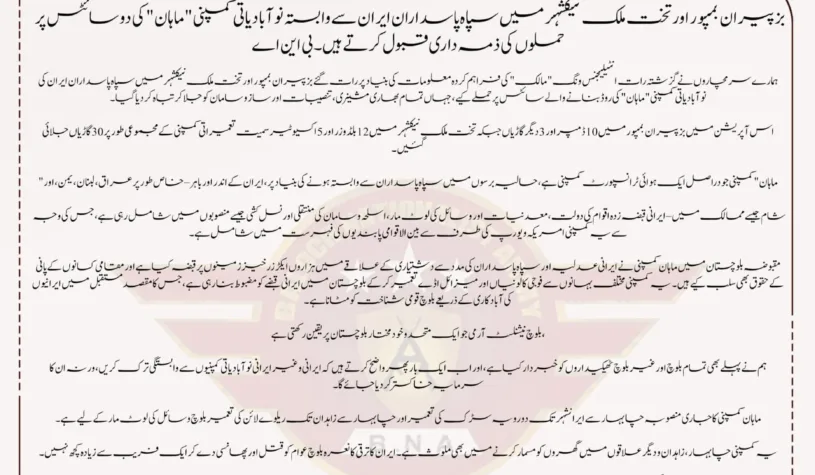 بزپیران بمپور اور تخت ملک نیکشہر میں سپاہ پاسداران ایران سے وابستہ نوآبادیاتی کمپنی "ماہان" کی دو سائٹس پر
حملوں کی ذمہ داری قبول کرتے ہیں۔ بی این اے
ہمارے سرمچاروں نے گزشتہ رات انٹیلیجنس ونگ "مالک" کی فراہم کردہ معلومات کی بنیاد پر رات گئے بزپیران بمپور اور تخت ملک نیکشہر میں سپاہ پاسداران ایران کی
نوآبادیاتی کمپنی "ماہان" کی روڈ بنانے والے سائٹس پر حملے کیے، جہاں تمام بھاری مشینری، تنصیبات اور ساز و سامان کو جلا کر تباہ کر دیا گیا۔
اس آپریشن میں بزپیران بمپور میں 10 ڈمپر اور 3 دیگر گاڑیاں جبکہ تخت ملک نیکشہر میں 12 بلڈوزر اور 5 اکسیویٹر سمیت تعمیراتی کمپنی کے مجموعی طور پر 30 گاڑیاں جلائی
گئیں۔
ماہان" کمپنی جو دراصل ایک ہوائی ٹرانسپورٹ کمپنی ہے، حالیہ برسوں میں سپاہ پاسداران سے وابستہ ہونے کی بنیاد پر، ایران کے اندر اور باہر – خاص طور پر عراق، لبنان، یمن، اور"
شام جیسے ممالک میں – ایرانی قبضہ زدہ اقوام کی دولت، معدنیات اور وسائل کی لوٹ مار، اسلحہ و سامان کی منتقلی اور نسل کشی جیسے منصوبوں میں شامل رہی ہے، جس کی وجہ
سے یہ کمپنی امریکہ و یورپ کی طرف سے بین الاقوامی پابندیوں کی فہرست میں شامل ہے۔
مقبوضہ بلوچستان میں ماہان کمپنی نے ایرانی عدلیہ اور سپاہ پاسداران کی مدد سے دشتیاری کے علاقے میں ہزاروں ایکڑ زرخیز زمینوں پر قبضہ کیا ہے اور مقامی کسانوں کے پانی
کے حقوق بھی سلب کیے ہیں۔ یہ کمپنی مختلف بہانوں سے فوجی کالونیاں اور میزائل اڈے تعمیر کر کے بلوچستان میں ایرانی قبضے کو مضبوط بنا رہی ہے، جس کا مقصد مستقبل میں ایرانیوں
کی آبادکاری کے ذریعے بلوچ قومی شناخت کو مٹانا ہے۔
،بلوچ نیشنلسٹ آرمی جو ایک متحد و خود مختار بلوچستان پر یقین رکھتی ہے
ہم نے پہلے بھی تمام بلوچ اور غیر بلوچ ٹھیکیداروں کو خبردار کیا ہے، اور اب ایک بار پھر واضح کرتے ہیں کہ ایرانی و غیر ایرانی نوآبادیاتی کمپنیوں سے وابستگی ترک کریں، ورنہ ان کا
سرمایہ خاکستر کر دیا جائے گا۔
ماہان کمپنی کا جاری منصوبہ چابہار سے ایرانشہر تک دو رویہ سڑک کی تعمیر اور چابہار سے زاہدان تک ریلوے لائن کی تعمیر بلوچ وسائل کی لوٹ مار کے لیے ہے۔
یہ کمپنی چابہار، زاہدان و دیگر علاقوں میں گھروں کو مسمار کرنے میں بھی ملوث ہے۔ ایران کا ترقی کا نعرہ بلوچ عوام کو قتل اور پھانسی دے کر ایک فریب سے زیادہ کچھ نہیں۔
BNA